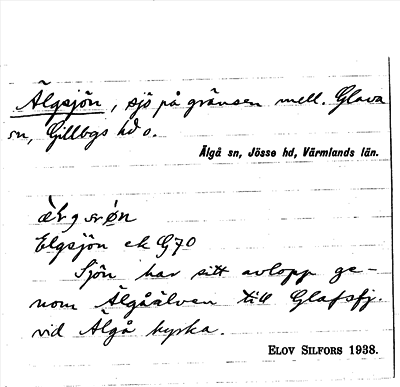 Älgsjön, sjö på gränsen mell. Glava
sn, Gillbgs hd o.
Älgå sn, Jösse hd, Värmlands län.
Elgsjön ek G70
Sjön har sitt avlopp ge-
nom Älgåälven till Glafsfj.
vid Älgå kyrka.
ELOV SILFORS 1938.